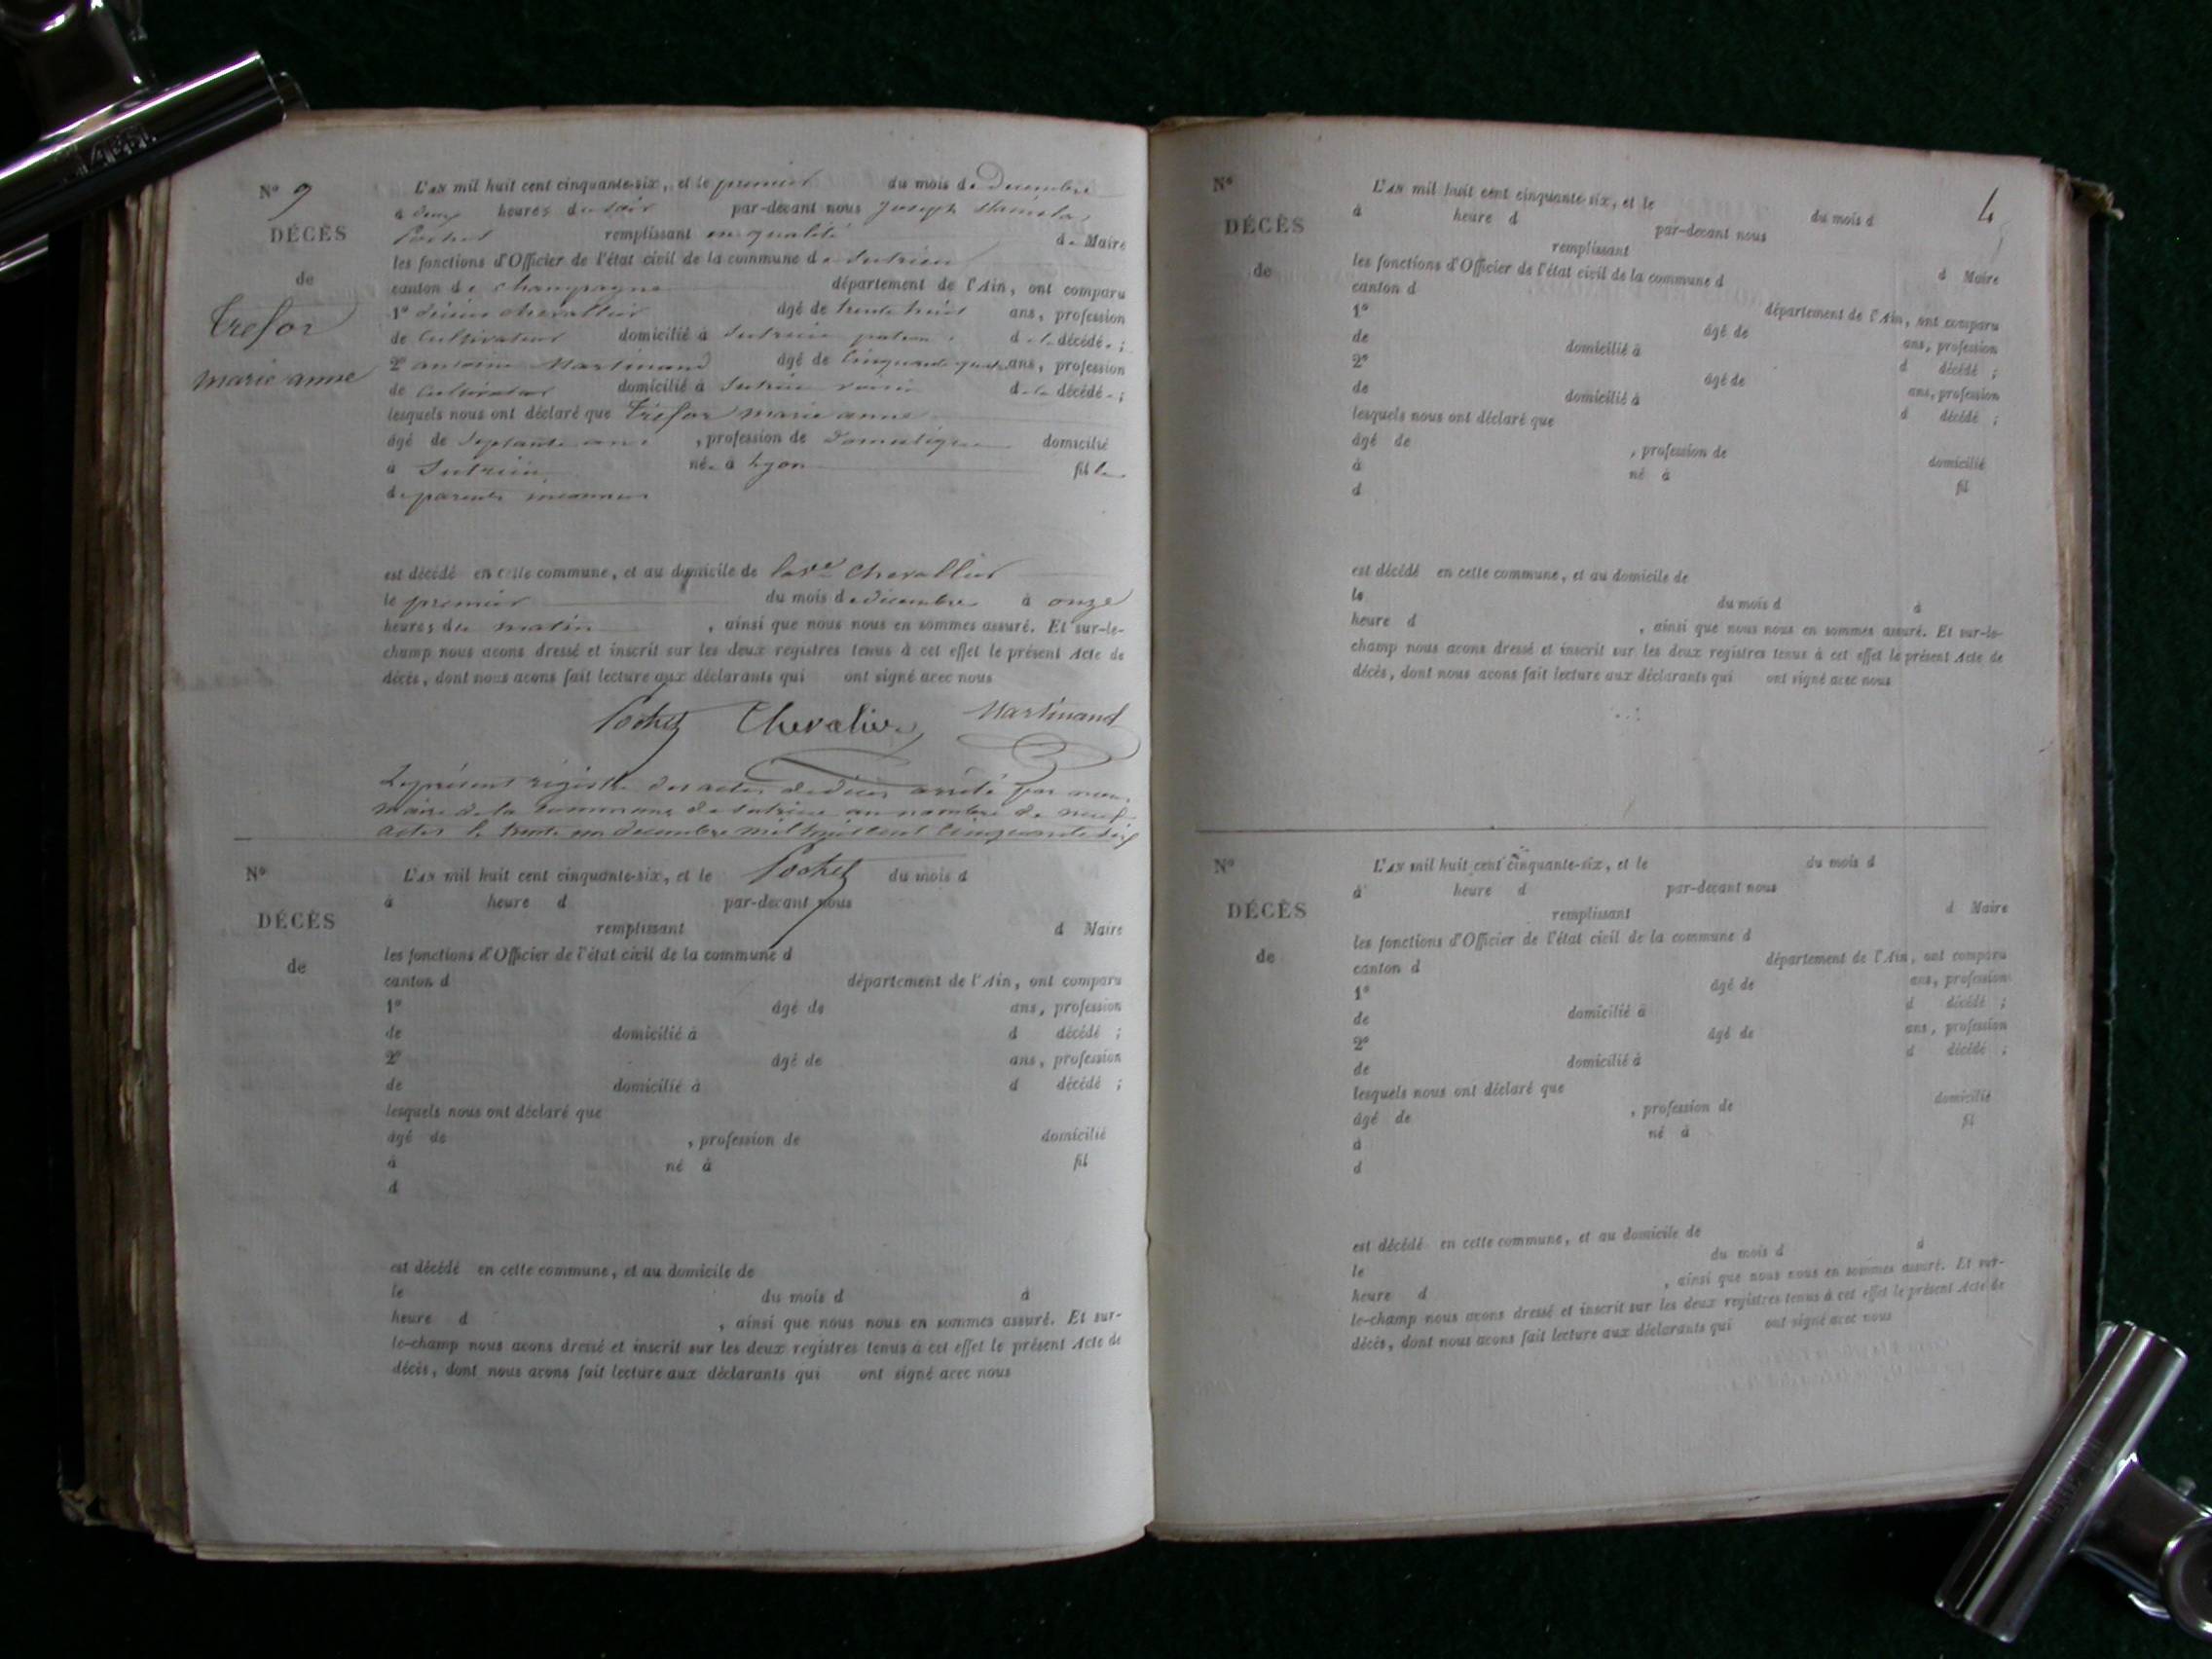 N° 9
DÉCÈS
de
Tresor
marie anne
L'AN mil huit cent cinquante-six, et le premier du mois de Decembre
à deux heures du soir par-devant nous Joseph Stanislas
Pochet remplissant en qualité de Maire
les fonctions d'Officier de l'état civil de la commune de Sutrieu
canton de champagne département de l'Ain, ont comparu
1° Chevallier âgé de trente huit ans, profession
de Cultivateur domicilié à Sutrieu patron de la décédée ;
2° antoine Martinand âgé de Cinquante quatre ans, profession
de Cultivateur domicilié à Sutrieu voisin de la décédée ;
lesquels nous ont déclaré que Trésor marie anne
âgé de Septante ans , profession de Domestique domicilié
à Sutrieu née à Lyon fille
de parents inconnus
est décédé en cette commune, et au domicile de la Ve Chevallier
le premier du mois de décembre à onze
heures du matin , ainsi que nous nous en sommes assuré. Et sur-le-
champ nous avons dressé et inscrit sur les deux registres tenus à cet effet le présent Acte de
décès, dont nous avons fait lecture aux déclarants qui ont signé avec nous
Pochet Chevalier Martinand
Le présent régistre des actes de décès arrêté par nous
maire de la commune de Sutrieu au nombre de neuf
actes le trente un decembre mil huit cent cinquante six
Pochet
N°
DÉCÈS
de
L'AN mil huit cent cinquante-six, et le du mois d
à heure d par-devant nous
remplissant d Maire
les fonctions d'Officier de l'état civil de la commune d
canton d département de l'Ain, ont comparu
1° âgé de ans, profession
de domicilié à d décédé ;
2° âgé de ans, profession
de domicilié à d décédé ;
lesquels nous ont déclaré que
âgé de , profession de domicilié
à né à fil
d
est décédé en cette commune, et au domicile de
le du mois d à
heure d , ainsi que nous nous en sommes assuré. Et sur-
le-champ nous avons dressé et inscrit sur les deux registres tenus à cet effet le présent Acte de
décès, dont nous avons fait lecture aux déclarants qui ont signé avec nous
4
N°
DÉCÈS
de
L'AN mil huit cent cinquante-six, et le du mois d
à heure d par-devant nous
remplissant d Maire
les fonctions d'Officier de l'état civil de la commune d
canton d département de l'Ain, ont comparu
1° âgé de ans, profession
de domicilié à d décédé ;
2° âgé de ans, profession
de domicilié à d décédé ;
lesquels nous ont déclaré que
âgé de , profession de domicilié
à né à fil
d
est décédé en cette commune, et au domicile de
le du mois d à
heure d , ainsi que nous nous en sommes assuré. Et sur-le-
champ nous avons dressé et inscrit sur les deux registres tenus à cet effet le présent Acte de
décès, dont nous avons fait lecture aux déclarants qui ont signé avec nous
N°
DÉCÈS
de
L'AN mil huit cent cinquante-six, et le du mois d
à heure d par-devant nous
remplissant d Maire
les fonctions d'Officier de l'état civil de la commune d
canton d département de l'Ain, ont comparu
1° âgé de ans, profession
de domicilié à d décédé ;
2° âgé de ans, profession
de domicilié à d décédé ;
lesquels nous ont déclaré que
âgé de , profession de domicilié
à né à fil
d
est décédé en cette commune, et au domicile de
le du mois d à
heure d , ainsi que nous nous en sommes assuré. Et sur-
le-champ nous avons dressé et inscrit sur les deux registres tenus à cet effet le présent Acte de
décès, dont nous avons fait lecture aux déclarants qui ont signé avec nous